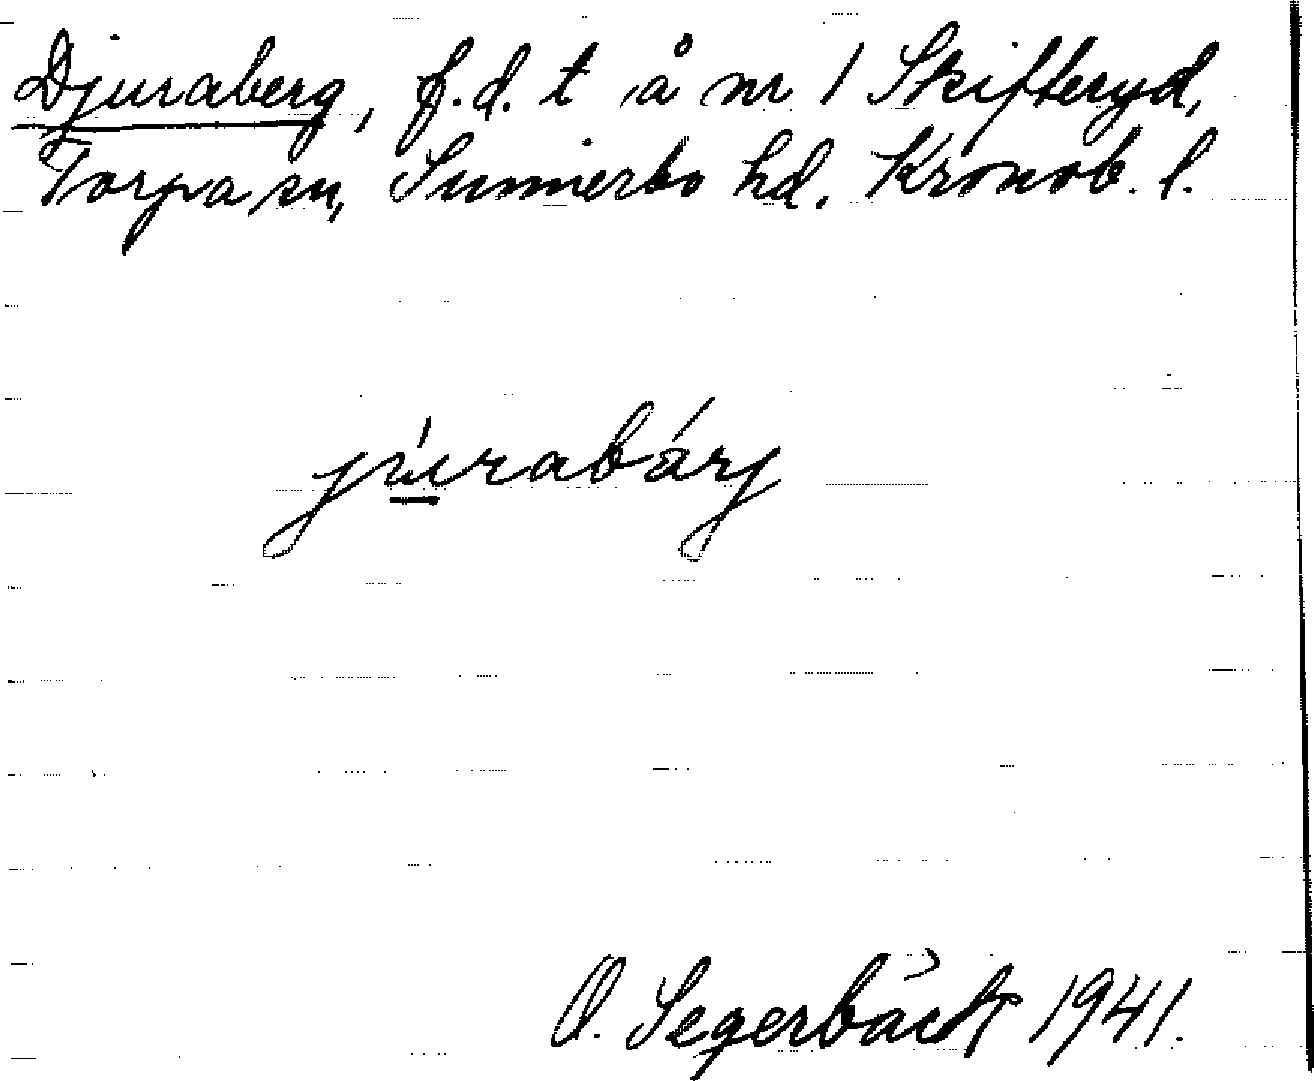 Djuraberg, f.d. t å nr 1 Skifteryd,
Torpa sn, Sunnerbo hd. Kronob. l.
júrabárj
O. Segerbäck 1941.